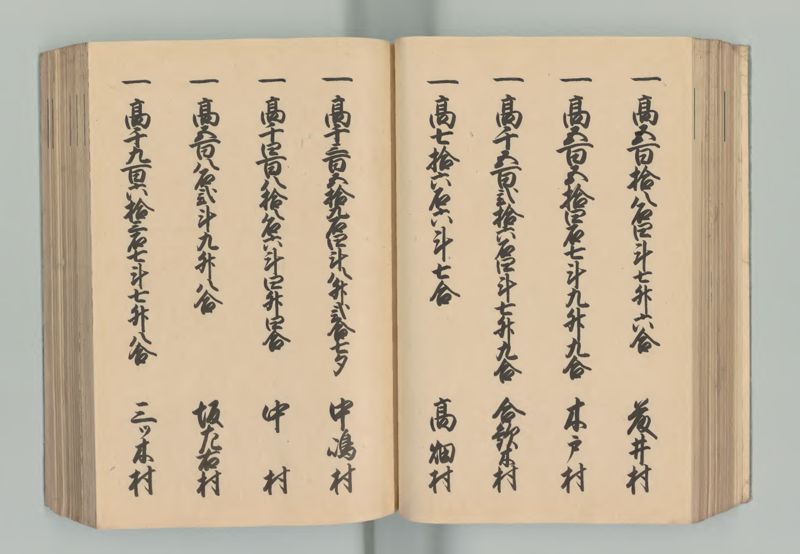 一 高五百拾八石四斗七升六合 荒井村
一 高五百五拾四石七斗九升九合 木戸村
一 高千五百弐拾六石四斗七升九合 合歓木村
一 高七拾六石六斗七合 高畑村
一 高千三百五拾九石四斗八升弐合七夕 中嶋村
一 高千四百八拾八石六斗四升四合 中村
一 高五百八石弐斗九升八合 坂左右村
一 高千九百六拾三石七斗七升八合 三ツ木村